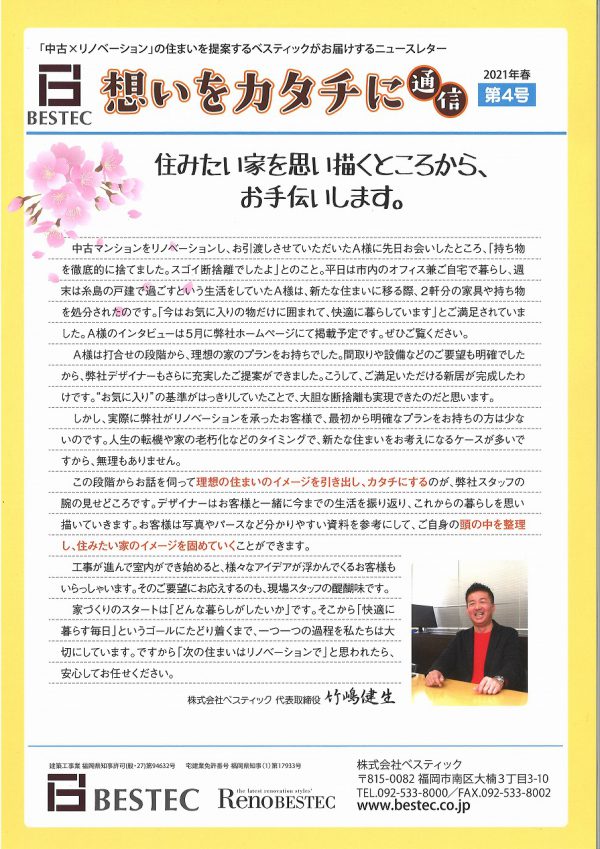 「中古×リノベーション」の住まいを提案するベスティックがお届けするニュースレター
BESTEC
想いをカタチに通信
2021年春
第4号
住みたい家を思い描くところから、
お手伝いします。
中古マンションをリノベーションし、お引渡しさせていただいたA様に先日お会いしたところ、「持ち物
を徹底的に捨てました。スゴイ断捨離でしたよ」とのこと。平日は市内のオフィス兼ご自宅で暮らし、週
末は糸島の戸建で過ごすという生活をしていたA様は、新たな住まいに移る際、2軒分の家具や持ち物
を処分されたのです。「今はお気に入りの物だけに囲まれて、快適に暮らしています」とご満足されていま
した。A様のインタビューは5月に弊社ホームページにて掲載予定です。ぜひご覧ください。
A様は打合せの段階から、理想の家のプランをお持ちでした。間取りや設備などのご要望も明確でした
から、弊社デザイナーもさらに充実したご提案ができました。こうして、ご満足いただける新居が完成したわ
けです。“お気に入り”の基準がはっきりしていたことで、大胆な断捨離も実現できたのだと思います。
しかし、実際に弊社がリノベーションを承ったお客様で、最初から明確なプランをお持ちの方は少な
いのです。人生の転機や家の老朽化などのタイミングで、新たな住まいをお考えになるケースが多いで
すから、無理もありません。
この段階からお話を伺って理想の住まいのイメージを引き出し、カタチにするのが、弊社スタッフの
腕の見せどころです。デザイナーはお客様と一緒に今までの生活を振り返り、これからの暮らしを思い
描いていきます。お客様は写真やパースなど分かりやすい資料を参考にして、ご自身の頭の中を整理
し、住みたい家のイメージを固めていくことができます。
工事が進んで室内ができ始めると、様々なアイデアが浮かんでくるお客様も
いらっしゃいます。そのご要望にお応えするのも、現場スタッフの醍醐味です。
家づくりのスタートは「どんな暮らしがしたいか」です。そこから「快適に
暮らす毎日」というゴールにたどり着くまで、一つ一つの過程を私たちは大
切にしています。ですから「次の住まいはリノベーションで」と思われたら、
安心してお任せください。
株式会社ベスティック 代表取締役 竹嶋健生
建築工事業 福岡県知事許可(般-27)第94632号 宅建業免許番号 福岡県知事(1)第17933号
BESTEC
the latest renovation styles'
RENOBESTEC
株式会社ベスティック
〒815-0082 福岡市南区大楠3丁目3-10
TEL.092-533-8000/FAX.092-533-8002
www.bestec.co.jp